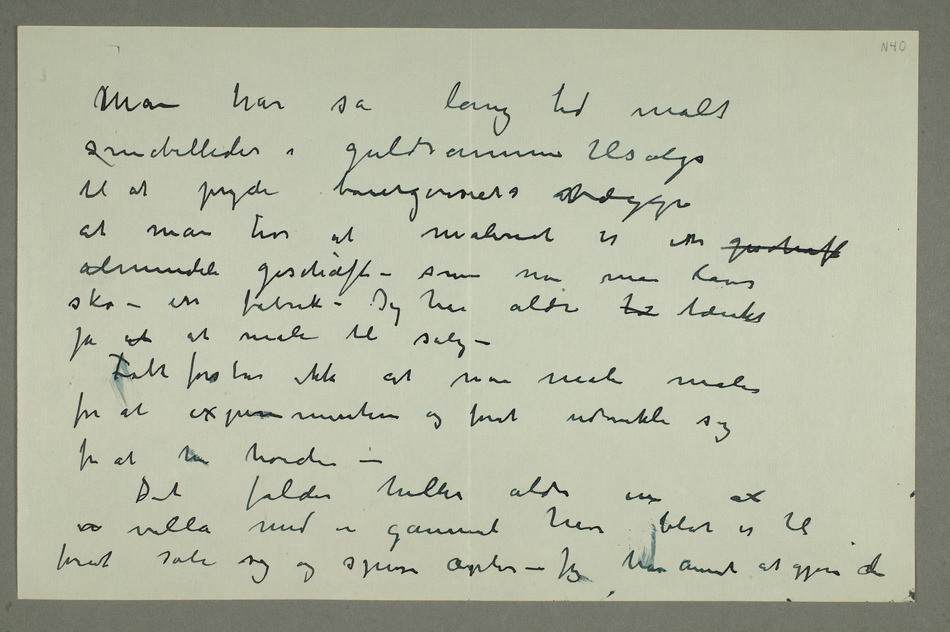 N40
Man har så lang tid malt
småbilleder i guldramme tilsalgs
til at pryde bourgeoisiets vægge
at man tror at maleriet er en geschæft
almindeli geschäft – som når man laver
sko – en fabrik – Jeg har aldri tænkt
på at male til salg –
Folk forstår ikke at man maler maler
for at experimentere og forat udvikle sig
for at
Det falder heller aldri
villa med en gammel have blot er til
forat sole sig og spise æpler – Jeg har ænset at gjøre de